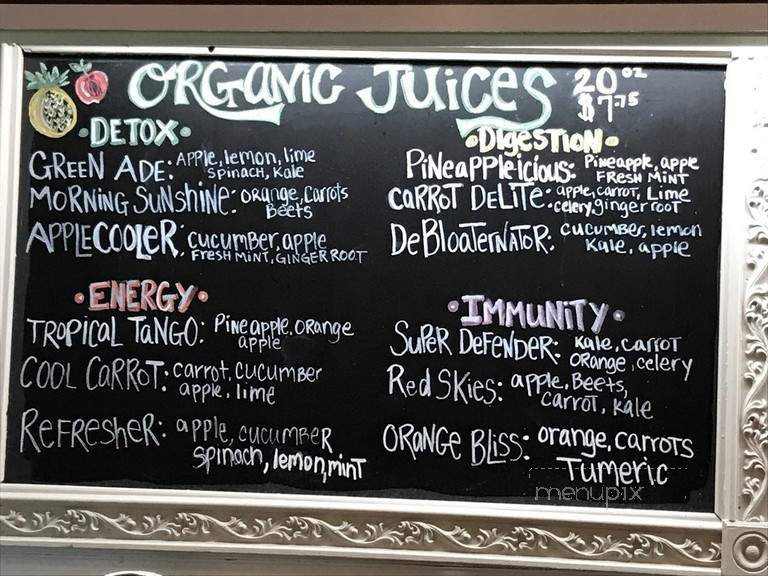 ORGANIC JUICES 20 oz
$7.75
DETOX
GREEN ADE: APPLE, lemon, lime
SPINACH, Kale
MORNING SUNSHINE: ORANGE, CARROTS
BeeTS
APPLE COOLER: CUCUMBER, APPLE
FRESH MINT, GINGER ROOT
ENERGY
TROPICAL TANGO: PINEAPPLE, ORANGE
apple
COOL CARROT: carrot, cucumber
apple, lime
REFRESHER: apple, cucumber
SPINACH, lemon, mint
DIGESTION
PINEAPPLEICIOUS: PINEAPPLE, apple
FRESH MINT
CARROT DELITE: apple, carrot, Lime
celery, ginger root
DeBLOATERNATOR: CUCUMBER, lemon
Kale, apple
IMMUNITY
SUPER DEFENDER: Kale, CARROT
ORANGE, celery
Red SKIES: apple, Beets,
carrot, Kale
ORANGE BLISS: orange, carrots
Tumeric
menupix